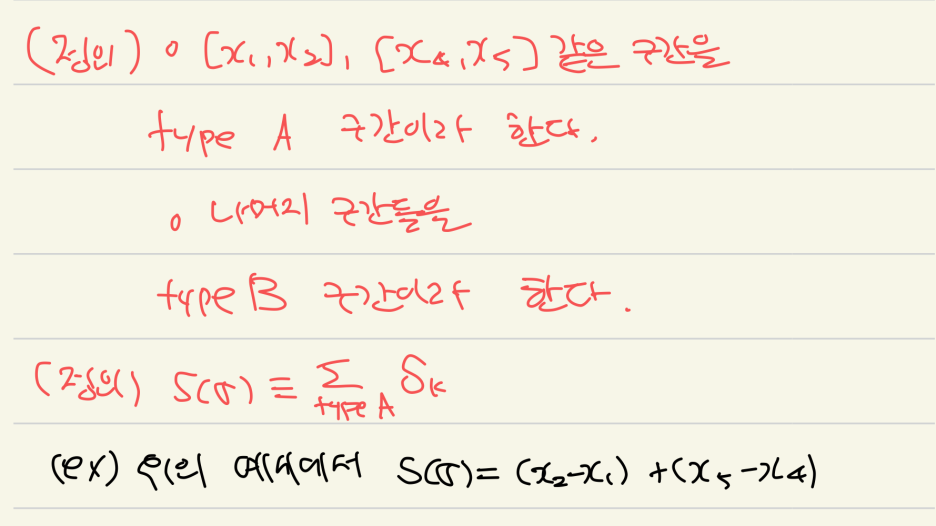 (정의) ∘ [x₁,x₂], [x₄,x₅] 같은 구간을
type A 구간이라 한다.
∘ 나머지 구간들을
type B 구간이라 한다.
(정의) S(σ) ≡ ∑_{type A} δₖ
(ex) 위의 예제에서 S(σ) = (x₂-x₁) + (x₅-x₄)